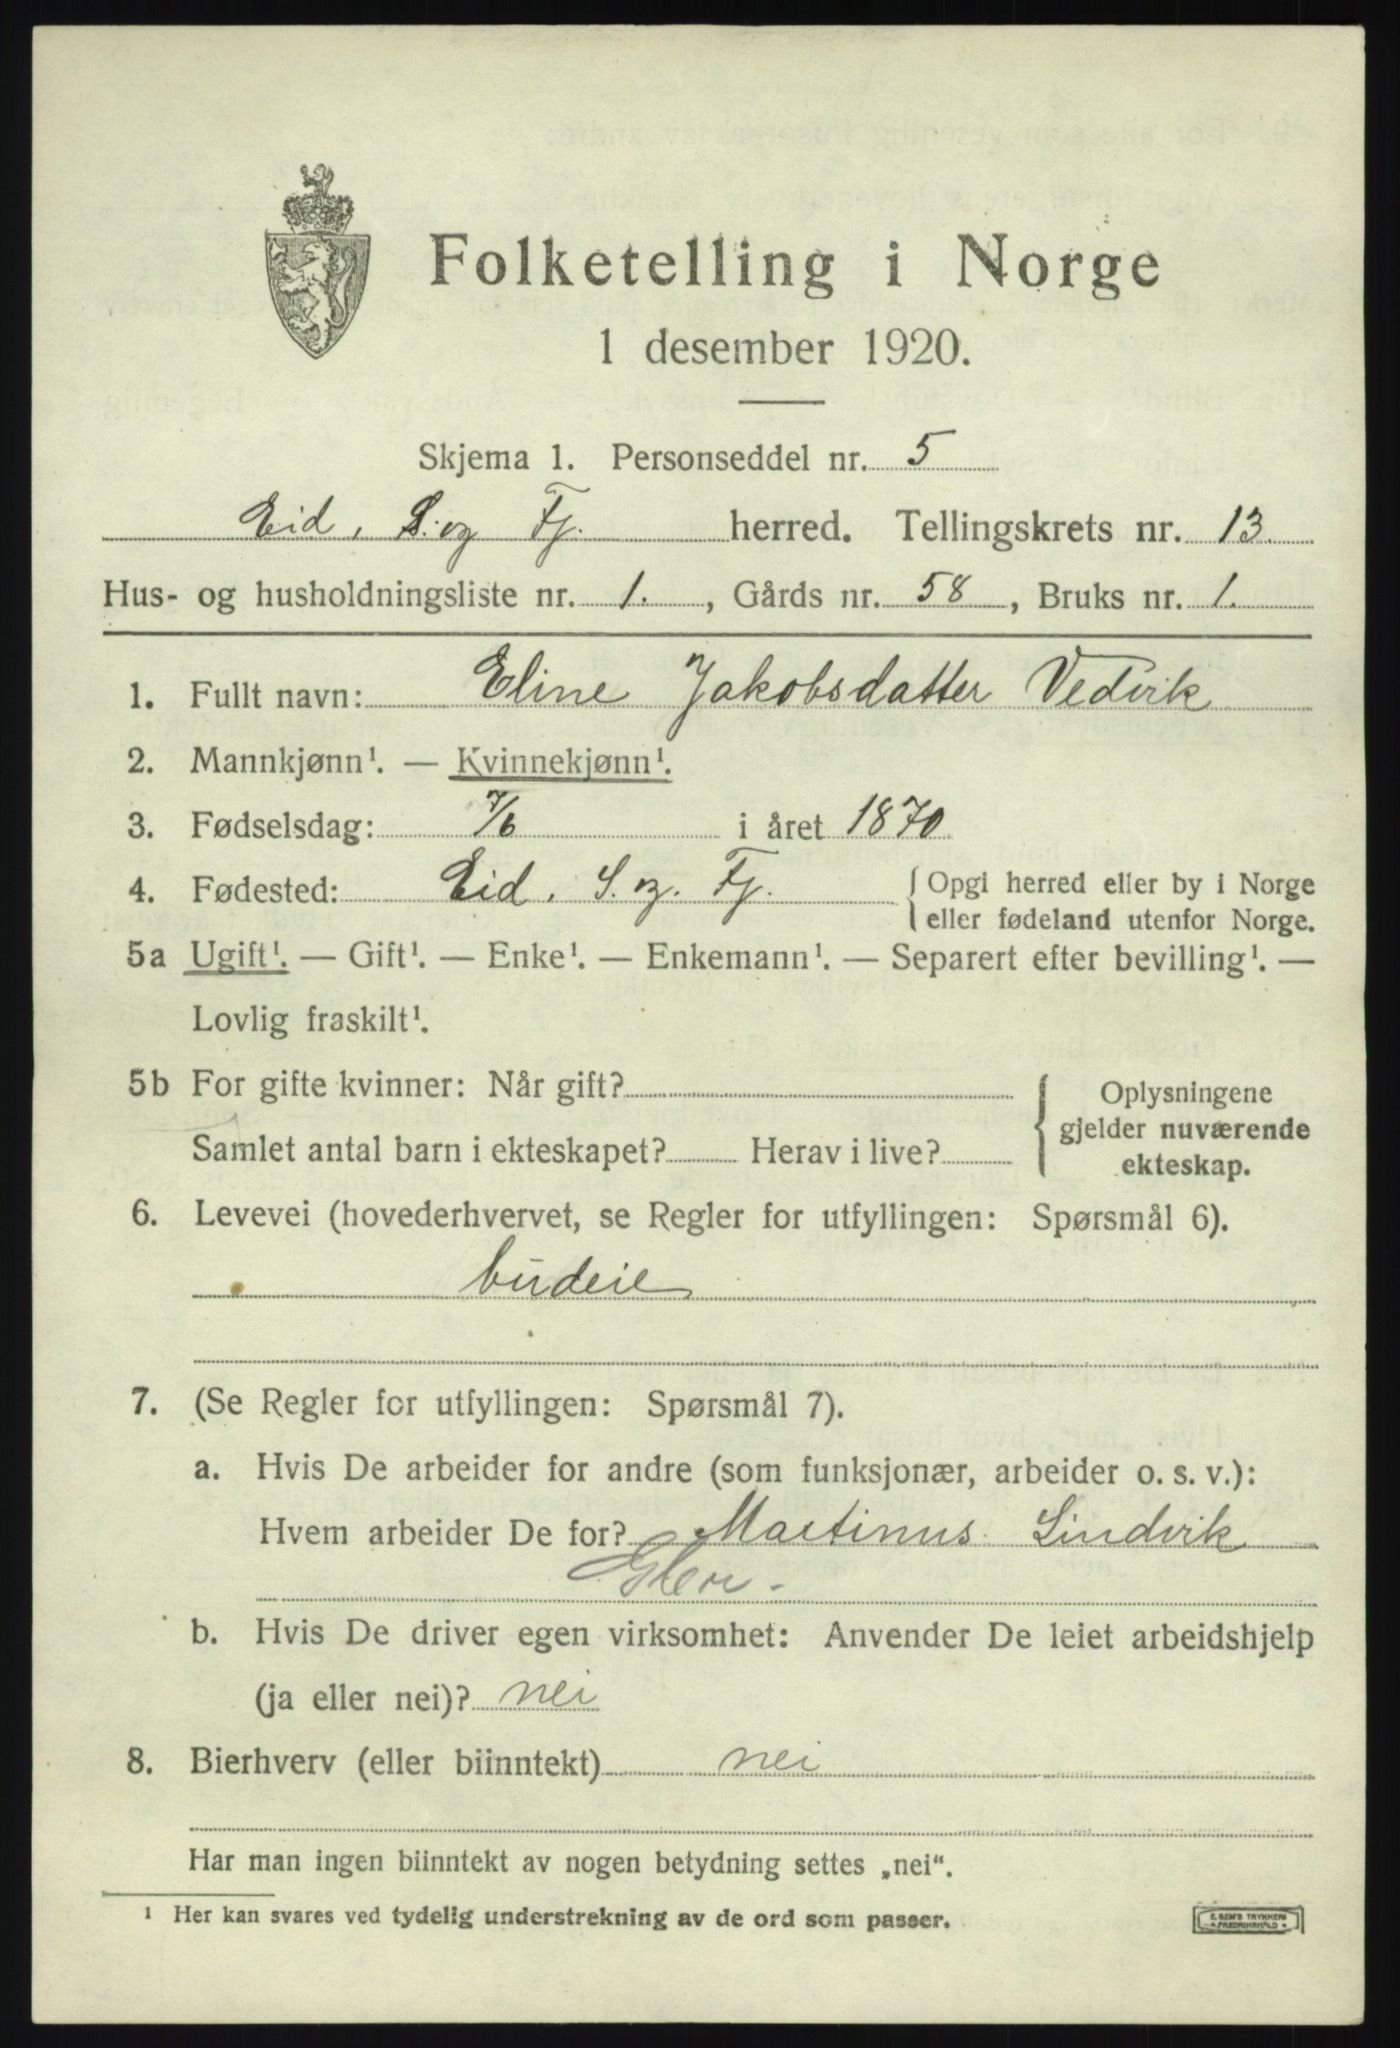 Folketelling i Norge
1 desember 1920.
Skjema 1. Personseddel nr. 5
Eid, S. og Fj. herred. Tellingskrets nr. 13.
Hus- og husholdningsliste nr. 1., Gårds nr. 58, Bruks nr. 1.
1. Fullt navn: Eline Jakobsdatter Vedvik
2. Mannkjønn¹. — Kvinnekjønn¹.
3. Fødselsdag: 7/6 i året 1870
4. Fødested: Eid, S. og. Fj. { Opgi herred eller by i Norge
eller fødeland utenfor Norge.
5a Ugift¹. — Gift¹. — Enke¹. — Enkemann¹. — Separert efter bevilling¹. —
Lovlig fraskilt¹.
5b For gifte kvinner: Når gift?
Samlet antal barn i ekteskapet? Herav i live?
{ Oplysningene
gjelder nuværende
ekteskap.
6. Levevei (hovederhvervet, se Regler for utfyllingen: Spørsmål 6).
budeie
7. (Se Regler for utfyllingen: Spørsmål 7).
a. Hvis De arbeider for andre (som funksjonær, arbeider o. s. v.):
Hvem arbeider De for? Martinus Lindvik
b. Hvis De driver egen virksomhet: Anvender De leiet arbeidshjelp
(ja eller nei)? nei
8. Bierhverv (eller biinntekt) nei
Har man ingen biinntekt av nogen betydning settes „nei“.
¹ Her kan svares ved tydelig understrekning av de ord som passer.
E. SEM'S TRYKKERI
FREDRIKSHALD